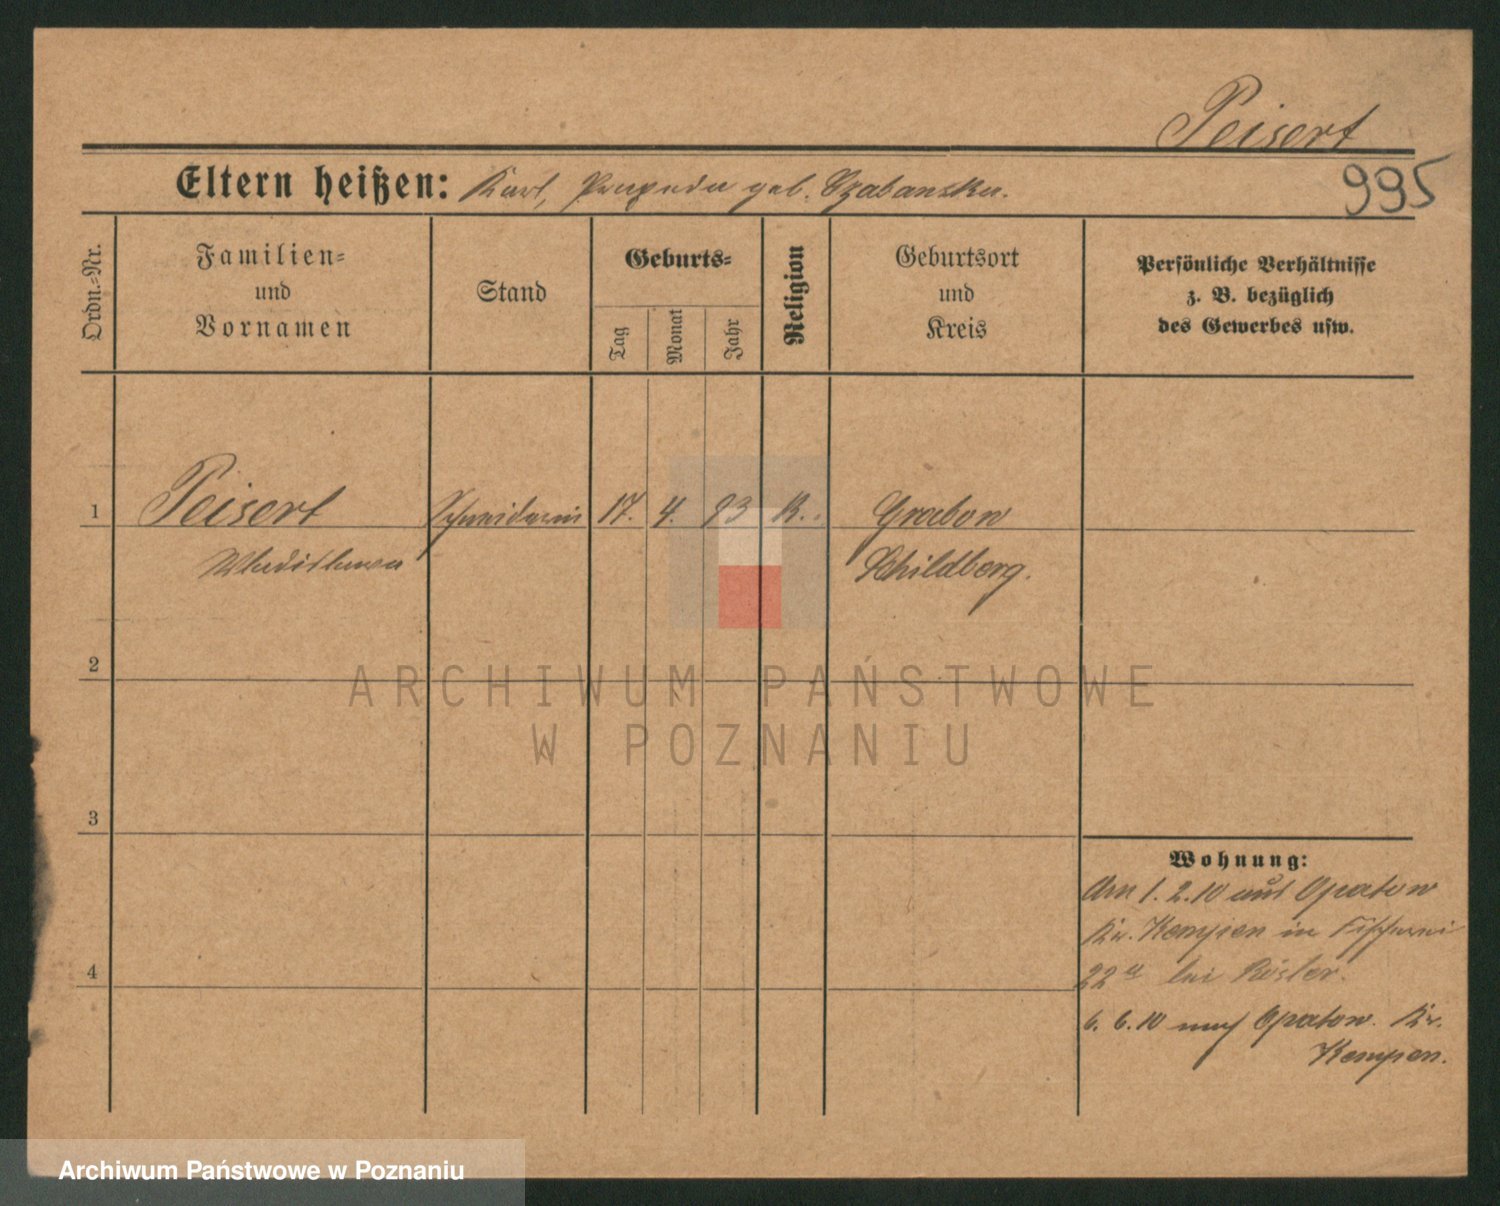 Peisert
995
Eltern heißen: Karl, geb. Czabanska.
Ordn.-Nr.
Familien-
und
Vornamen
Stand
Geburts-
Tag
Monat
Jahr
Religion
Geburtsort
und
Kreis
Persönliche Verhältnisse
z. B. bezüglich
des Gewerbes usw.
1 Peisert Schneiderin 17. 4. 93 K. Grabow
Wladislawa Schildberg.
2
ARCHIWUM PAŃSTWOWE
W POZNANIU
3
Wohnung:
Am 1. 2. 10 aus Opatow
Kr. Kempen in
22a bei Rösler.
4
6. 6. 10 nach Opatow. Kr.
Kempen.
Archiwum Państwowe w Poznaniu